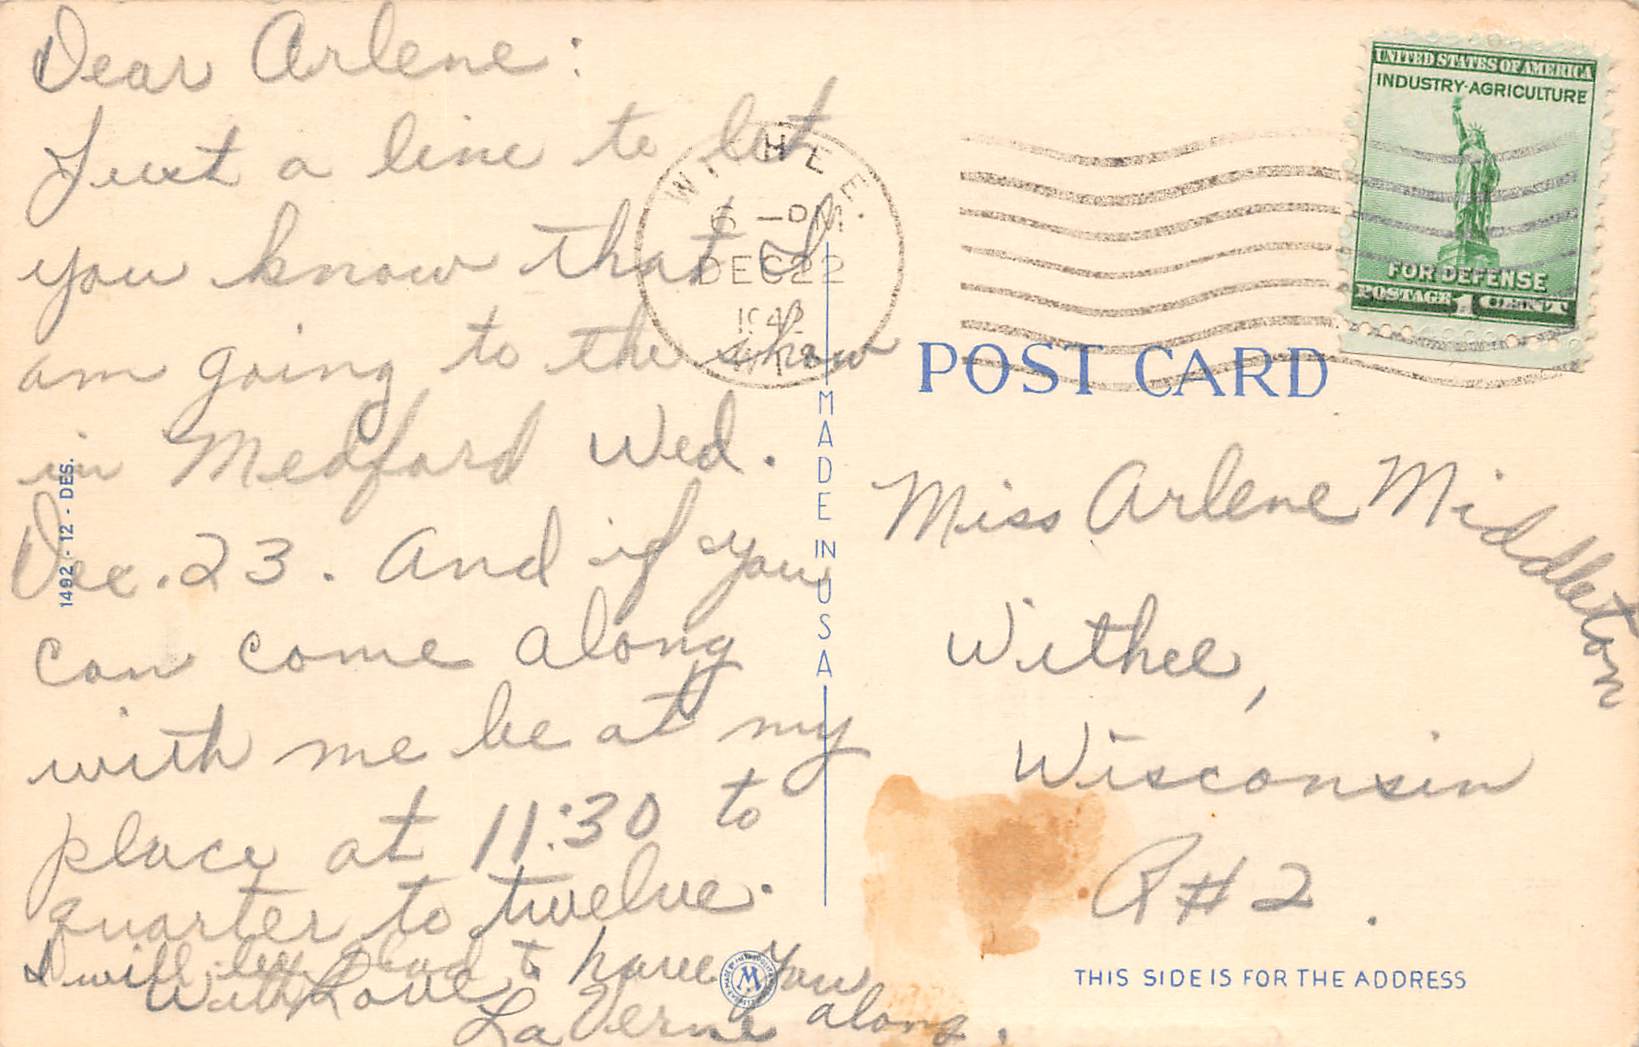 Dear Arlene:
Just a line to let
you know that I
am going to the show
in Medford Wed.
Dec. 23. And if you
can come along
with me be at my
place at 11:30 to
quarter to twelve.
I will be glad to have you
along.
With Love
La Verne
1492 - 12 - DES.
MADE IN USA
6 - PM
DEC 22
1942
WIS.
UNITED STATES OF AMERICA
INDUSTRY·AGRICULTURE
FOR DEFENSE
POSTAGE 1 CENT
POST CARD
Miss Arlene Middleton
Withee,
Wisconsin
R#2.
THIS SIDE IS FOR THE ADDRESS